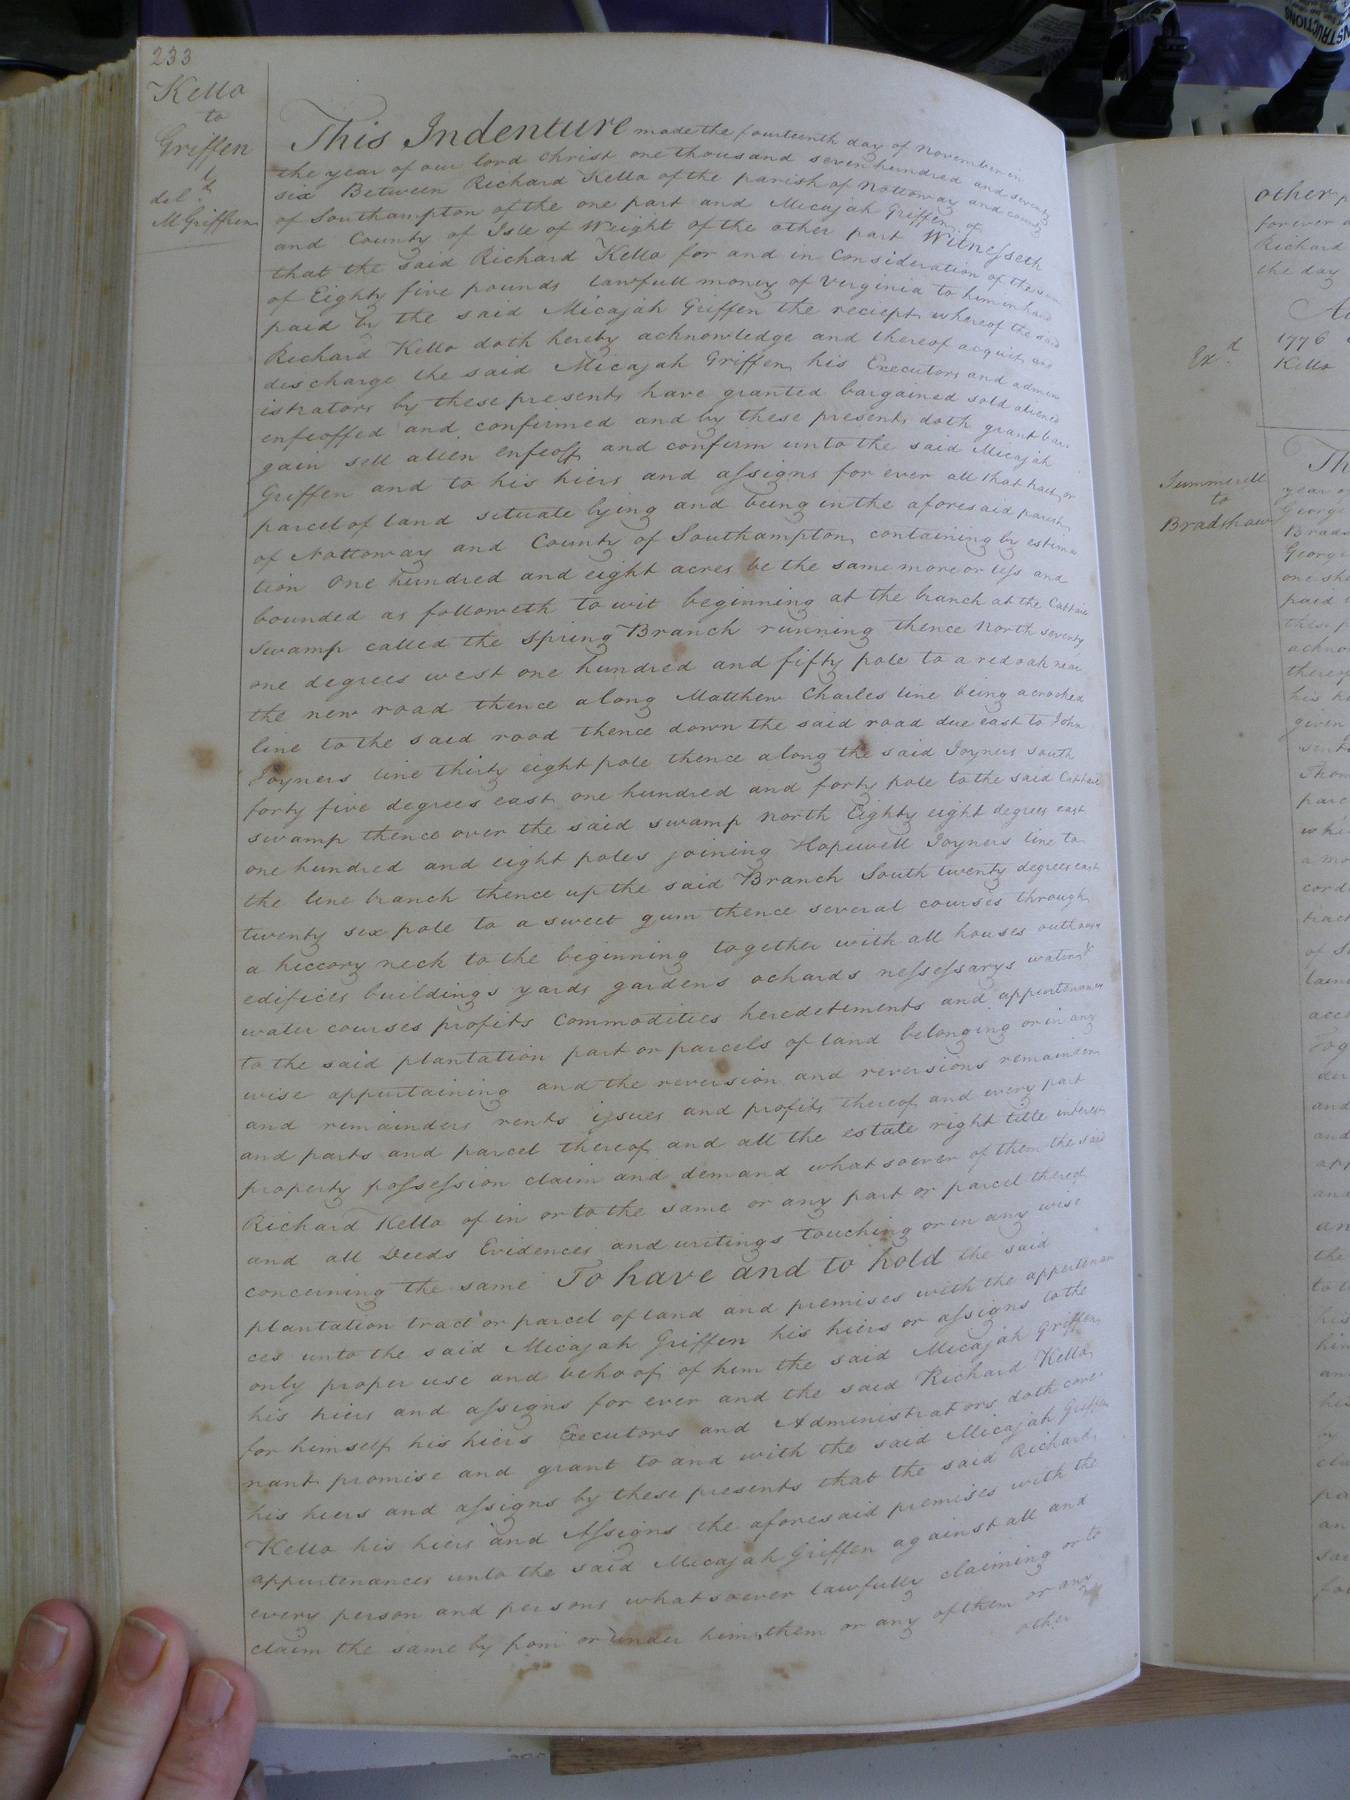 233
Kello
to
Griffen
del.d
M Griffken
This Indenture made the fourteenth day of November in
the year of our lord Christ one thousand seven hundred and seventy
six Between Richard Kello of the parish of Nottoway and County
of Southampton of the one part and Micajah Griffen of
and County of Isle of Weight of the other part Witnesseth
that the said Richard Kello for and in Consideration of the sum
of Eighty five pounds lawfull money of Virginia to him in hand
paid by the said Micajah Griffen the reciept whereof the said
Richard Kello doth hereby acknowledge and thereof acquit and
descharge the said Micajah Griffen his Executors and admin
istrators by these presents have granted bargained sold aliened
enfeoffed and confirmed and by these presents doth grant bar
gain sell alien enfeoff and confirm unto the said Micajah
Griffen and to his hiers and assigns for ever all that tract or
parcel of land situate lying and being in the aforesaid parish
of Nottoway and County of Southampton containing by estima
tion One hundred and eight acres be the same more or less and
bounded as followeth to wit beginning at the branch at the
swamp called the Spring Branch running thence North seventy
one degrees west one hundred and fifty pole to a red oak near
the new road thence along Matthew Charles line being a crooked
line to the said road thence down the said road due east to John
Joyners line thirty eight pole thence along the said Joyners South
forty five degrees east one hundred and forty pole to the said
swamp thence over the said swamp North Eighty eight degrees east
one hundred and eight poles joining Hopewell Joyners line to
the line branch thence up the said Branch South twenty degrees east
twenty six pole to a sweet gum thence several courses through
a hiccory neck to the beginning together with all houses outhouses
edifices buildings yards gardens ochards nessessarys waters &
water courses profits Commodities heredetements and appurtenances
to the said plantation part or parcels of land belonging or in any
wise appurtaining and the reversion and reversions remainder
and remainders rents issues and profits thereof and every part
and parts and parcel thereof and all the estate right title interest
property possession claim and demand whatsoever of them the said
Richard Kello of in or to the same or any part or parcel thereof
and all Deeds Evidences and writings touching or in any wise
concerning the same To have and to hold the said
plantation tract or parcel of land and premises with the appertenan
ces unto the said Micajah Griffen his hiers or assigns to the
only proper use and behoof of him the said Micajah Griffen
his hiers and assigns for ever and the said Richard Kello
for himself his hiers Executors and Administrators doth cove
nant promise and grant to and with the said Micajah Griffen
his hiers and assigns by these presents that the said Richard
Kello his hiers and Assigns the aforesaid premises with the
appurtenances unto the said Micajah Griffen against all and
every person and persons whatsoever lawfully claiming or to
claim the same by from or under him them or any of them or any
other
other
for ever
Richard
the day
1776
Ex.d
Kello
Summerell
to
Bradshaw
Th
year of
George
Brads
George
one sh
paid
these p
ackno
there
his h
given
Thom
parc
whi
a mo
cord
tract
of S
acco
Tog
and
and
app
and
an
the
to
his
him
and
his
cla
pa
an
sa